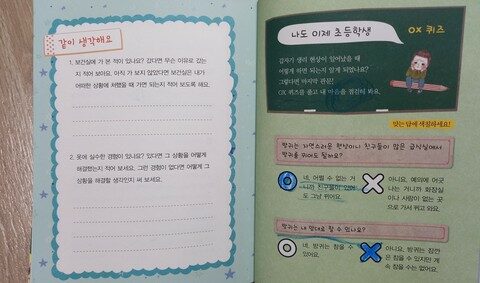 같이 생각해요
1. 보건실에 가 본 적이 있나요? 갔다면 무슨 이유로 갔는
지 적어 보아요. 아직 가 보지 않았다면 보건실은 내가
어떠한 상황에 처했을 때 가면 되는지 적어 보도록 해요.
2. 옷에 실수한 경험이 있나요? 있다면 그 상황을 어떻게
해결했는지 적어 보세요. 그런 경험이 없다면 어떻게 그
상황을 해결할 생각인지 써 보세요.
나도 이제 초등학생
OX 퀴즈
갑자기 생리 현상이 일어났을 때
어떻게 하면 되는지 알게 되었나요?
그렇다면 마지막 관문!
OX 퀴즈를 풀고 내 마음을 점검해 봐요.
맞는 답에 색칠하세요!
방귀는 자연스러운 현상이니 친구들이 많은 급식실에서
방귀를 뀌어도 될까요?
O
네, 어쩔 수 없는 거
니까 친구들이 있어
도 그냥 뀌어요.
X
아니요, 예의에 어긋
나는 거니까 화장실
이나 사람이 없는 곳
으로 가서 뀌고 와요.
방귀는 내 맘대로 참을 수 있나요?
O
네, 방귀는 참을 수
있어요.
X
아니요, 방귀는 잠깐
은 참을 수 있지만 계
속 참을 수는 없어요.